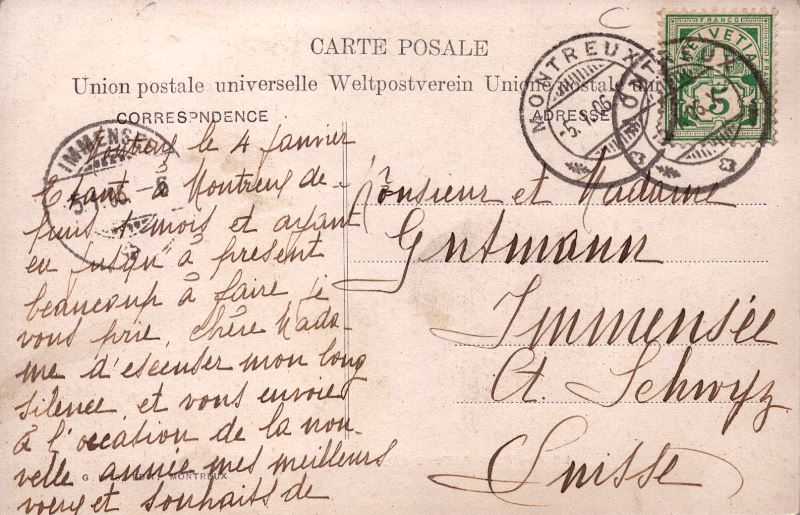 CARTE POSALE
Union postale universelle Weltpostverein Unione postale
CORRESPNDENCE
ADRESSE
FRANCO
HELVETIA
5
MONTREUX
5.I.06
IMMENSEE
Montreux le 4 Janvier
Etant à Montreux de-
puis 1 mois et ayant
eu jusqu'à présent
beaucoup à faire je
vous prie, Chère Mada-
me d'escenser mon long
silence et vous envoie
à l'occation de la nou-
velle année mes meilleurs
voeux et souhaits de
Monsieur et Madame
Gutmann
Immensée
Ct. Schwyz
Suisse
G. MONTREUX